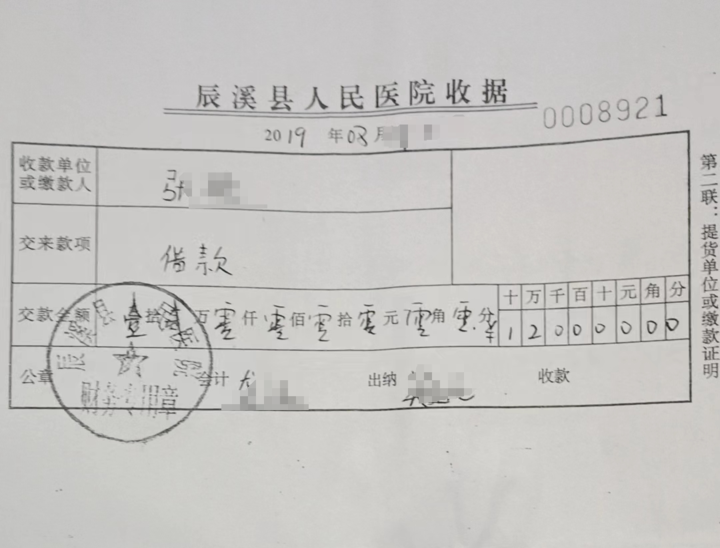 辰溪县人民医院收据
0008921
2019 年 03 月
收款单位或缴款人
交来款项 借款
交款金额 壹拾 万 零 仟 零 佰 零 拾 零 元 零 角 零 分
十 万 千 百 十 元 角 分
¥ 1 2 0 0 0 0 0 0
公章 会计 出纳 收款
财务专用章
第二联：提货单位或缴款证明